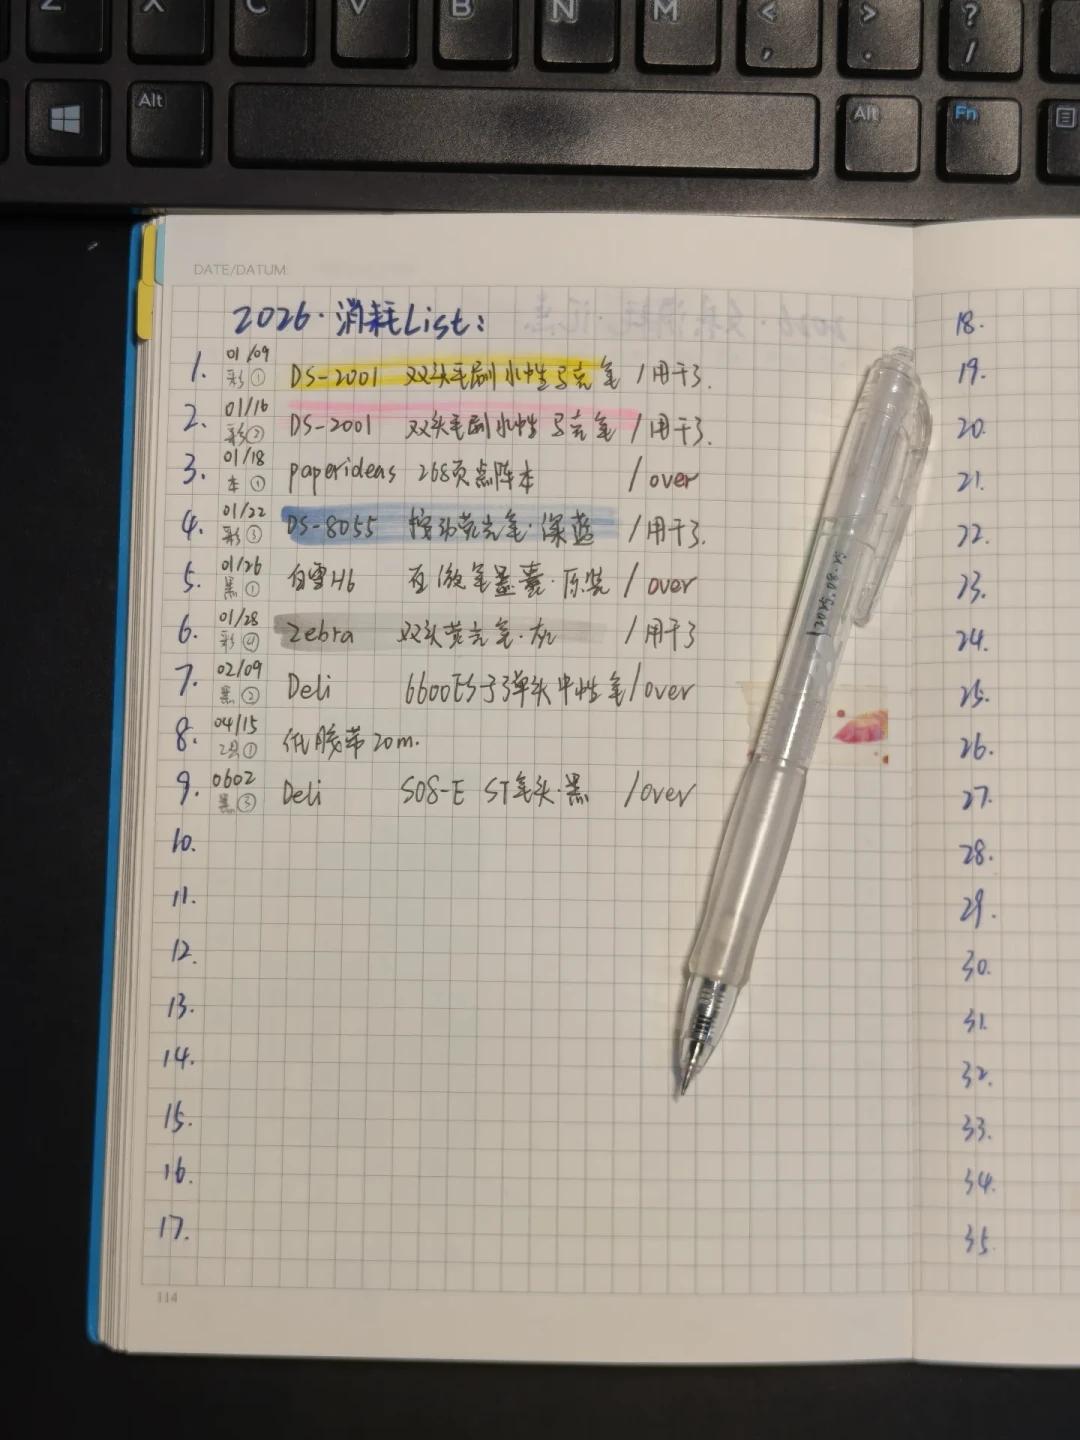 Z X C V B N M < , > . ? /
Alt Alt Fn
DATE/DATUM:
2026·消耗List:
1. 01/09 彩① DS-2001 双头毛刷水性马克笔 /用干了.
2. 01/16 彩② DS-2001 双头毛刷水性马克笔 /用干了.
3. 01/18 本① paperideas 268页点阵本 /over
4. 01/22 彩③ DS-8055 按动荧光笔·深蓝 /用干了.
5. 01/26 黑① 白雪H6 直液笔墨囊·原装 /over
6. 01/28 彩④ Zebra 双头荧光笔·灰 /用干了
7. 02/09 黑② Deli 6600ES子弹头中性笔/over
8. 04/15 工具① 纸胶带20m.
9. 0602 黑③ Deli S08-E ST笔头·黑 /over
10.
11.
12.
13.
14.
15.
16.
17.
114
18.
19.
20.
21.
22.
23.
24.
25.
26.
27.
28.
29.
30.
31.
32.
33.
34.
35.